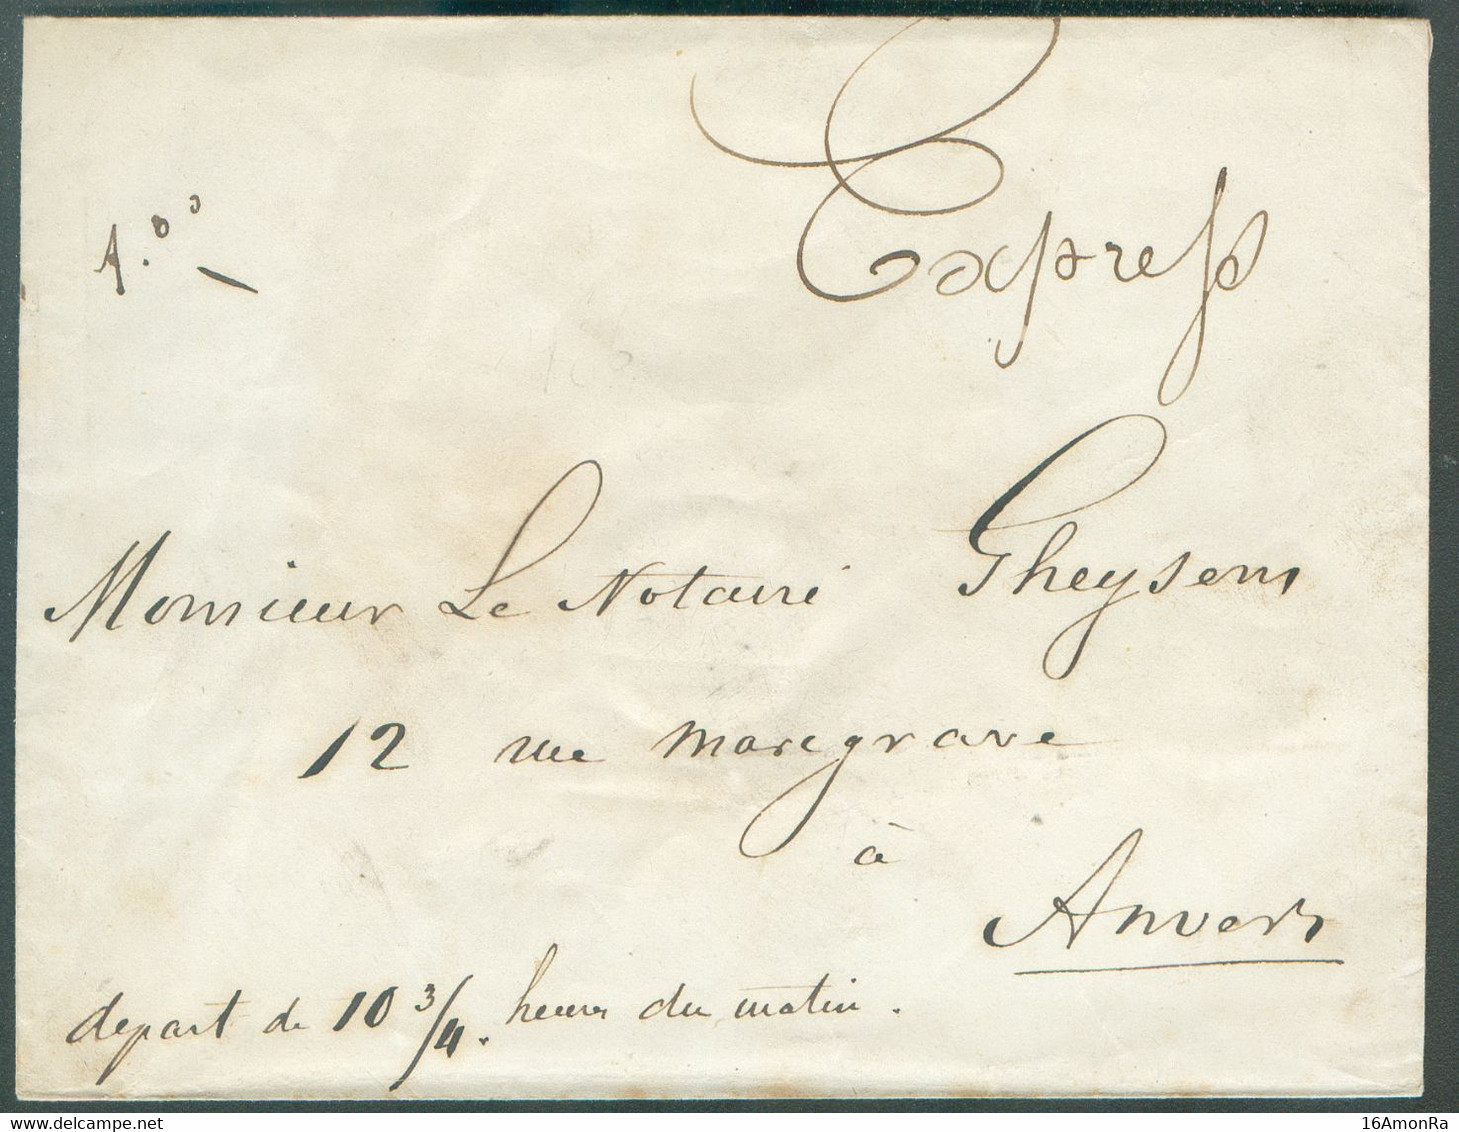 Express
1.00
Monsieur Le Notaire Gheysens
12 rue Maregrave
à
Anvers
depart de 10 3/4. heures du matin.
delcampe.net
16AmonRa